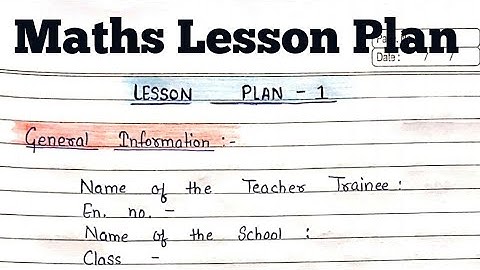 Maths Lesson Plan
Date : / /
LESSON PLAN - 1
General Information :-
Name of the Teacher Trainee :
En. no. -
Name of the School :
Class -